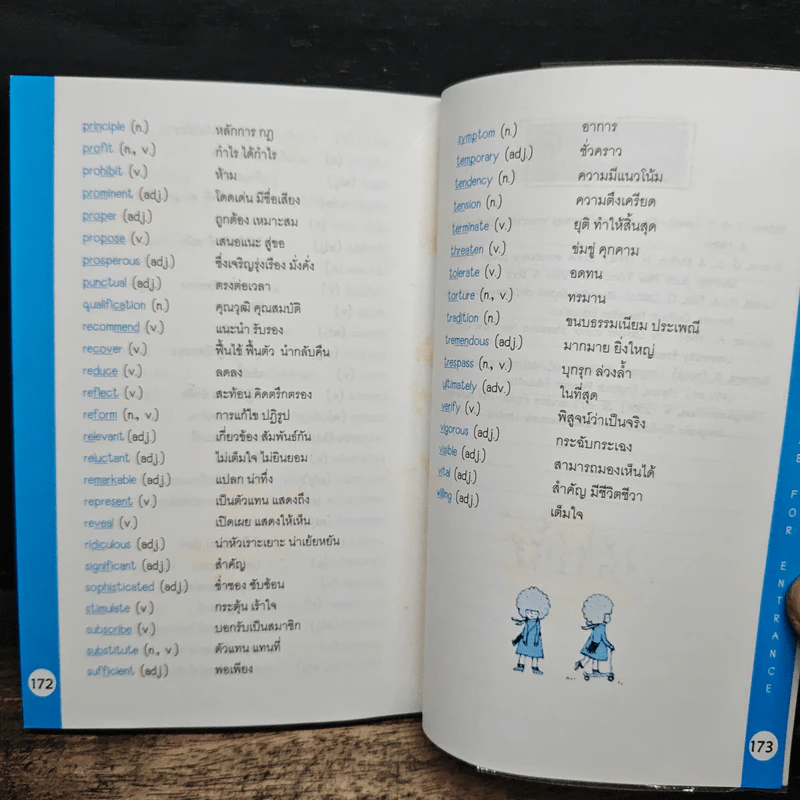 principle (n.) หลักการ กฎ
profit (n., v.) กำไร ได้กำไร
prohibit (v.) ห้าม
prominent (adj.) โดดเด่น มีชื่อเสียง
proper (adj.) ถูกต้อง เหมาะสม
propose (v.) เสนอแนะ สู่ขอ
prosperous (adj.) ซึ่งเจริญรุ่งเรือง มั่งคั่ง
punctual (adj.) ตรงต่อเวลา
qualification (n.) คุณวุฒิ คุณสมบัติ
recommend (v.) แนะนำ รับรอง
recover (v.) ฟื้นไข้ ฟื้นตัว นำกลับคืน
reduce (v.) ลดลง
reflect (v.) สะท้อน คิดตรึกตรอง
reform (n., v.) การแก้ไข ปฏิรูป
relevant (adj.) เกี่ยวข้อง สัมพันธ์กัน
reluctant (adj.) ไม่เต็มใจ ไม่ยินยอม
remarkable (adj.) แปลก น่าทึ่ง
represent (v.) เป็นตัวแทน แสดงถึง
reveal (v.) เปิดเผย แสดงให้เห็น
ridiculous (adj.) น่าหัวเราะเยาะ น่าเย้ยหยัน
significant (adj.) สำคัญ
sophisticated (adj.) ช่ำชอง ซับซ้อน
stimulate (v.) กระตุ้น เร้าใจ
subscribe (v.) บอกรับเป็นสมาชิก
substitute (n., v.) ตัวแทน แทนที่
sufficient (adj.) พอเพียง
172
symptom (n.) อาการ
temporary (adj.) ชั่วคราว
tendency (n.) ความมีแนวโน้ม
tension (n.) ความตึงเครียด
terminate (v.) ยุติ ทำให้สิ้นสุด
threaten (v.) ข่มขู่ คุกคาม
tolerate (v.) อดทน
torture (n., v.) ทรมาน
tradition (n.) ขนบธรรมเนียม ประเพณี
tremendous (adj.) มากมาย ยิ่งใหญ่
trespass (n., v.) บุกรุก ล่วงล้ำ
ultimately (adv.) ในที่สุด
verify (v.) พิสูจน์ว่าเป็นจริง
vigorous (adj.) กระฉับกระเฉง
visible (adj.) สามารถมองเห็นได้
vital (adj.) สำคัญ มีชีวิตชีวา
willing (adj.) เต็มใจ
FOR ENTRANCE
173